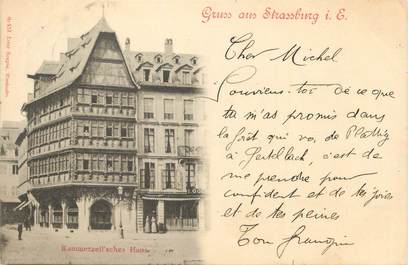 Gruss aus Strassburg i. E.
Cher Michel
Souviens-toi de ce que
tu m'as promis dans
la forêt qui va de
à c'est de
me prendre pour
confident et de tes joies
et de tes peines
Ton
Kammerzell'sches Haus.